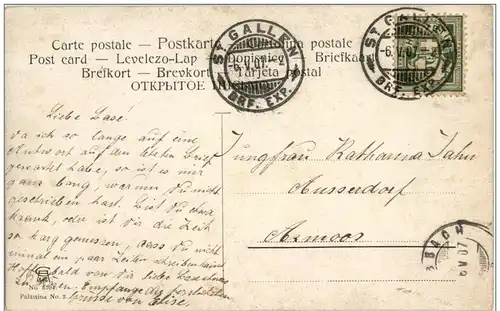 Carte postale - Postkarte - Cartolina postale
Post card - Levelezo-Lap - Dopisnice - Briefkaart
Brefkort - Brevkort - Tarjeta postal
ОТКРЫТОЕ
ST GALLEN
-6.V.07.
BRF. EXP.
ST GALLEN
-6.V.07.-
BRF. EXP.
Liebe Base!
Da ich so lange auf eine
Antwort auf den letzten Brief
gewartet habe, so ist es mir
ganz bang, warum Du nicht
geschrieben hast. Bist Du etwa
krank, oder ist dir die Zeit
so karg gemessen, dass Du nicht
mal ein paar Zeilen schreiben kannst
Hoffe bald von Dir liebe
Empfange die herzlichsten
Grüsse von Elise.
Jungfrau Katharina Jahn
Husserdorf
Azmoos
BACH
V.07
No
Palatina No. 2